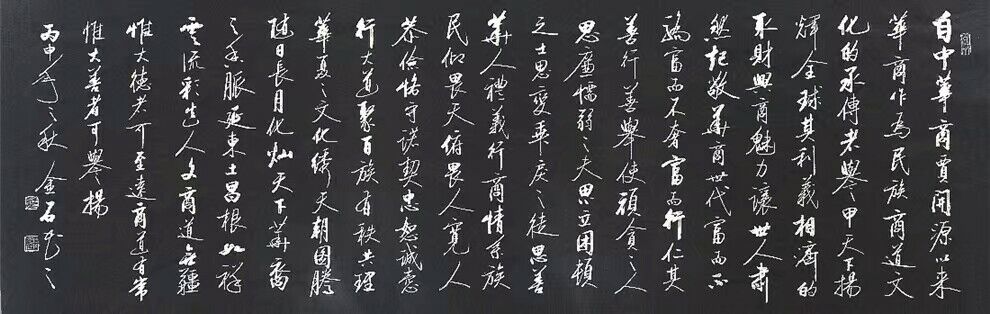 自中華商賈開源以来
華商作為民族商道文
化的承傳者譽甲天下揚
輝全球其利義相濟的
取財與商魅力讓世人肅
然起敬華商世代富而不
驕富而不奢富而行仁其
善行善舉使頑貪之人
思廉懦弱之夫思立困頓
之士思變乖戾之徒思善
華人禮義行商情系族
民仰畏天俯畏人寬人
恭儉恪守諾契忠恕誠意
行大道聚百族有秩共理
華夏之文化绣天朝圖騰
随日長月化灿天下華裔
之香脈延東土昌根如祥
雲流彩生人文商道無疆
惟大德者可至遠商道有常
惟大善者可譽揚
丙申年之秋金石